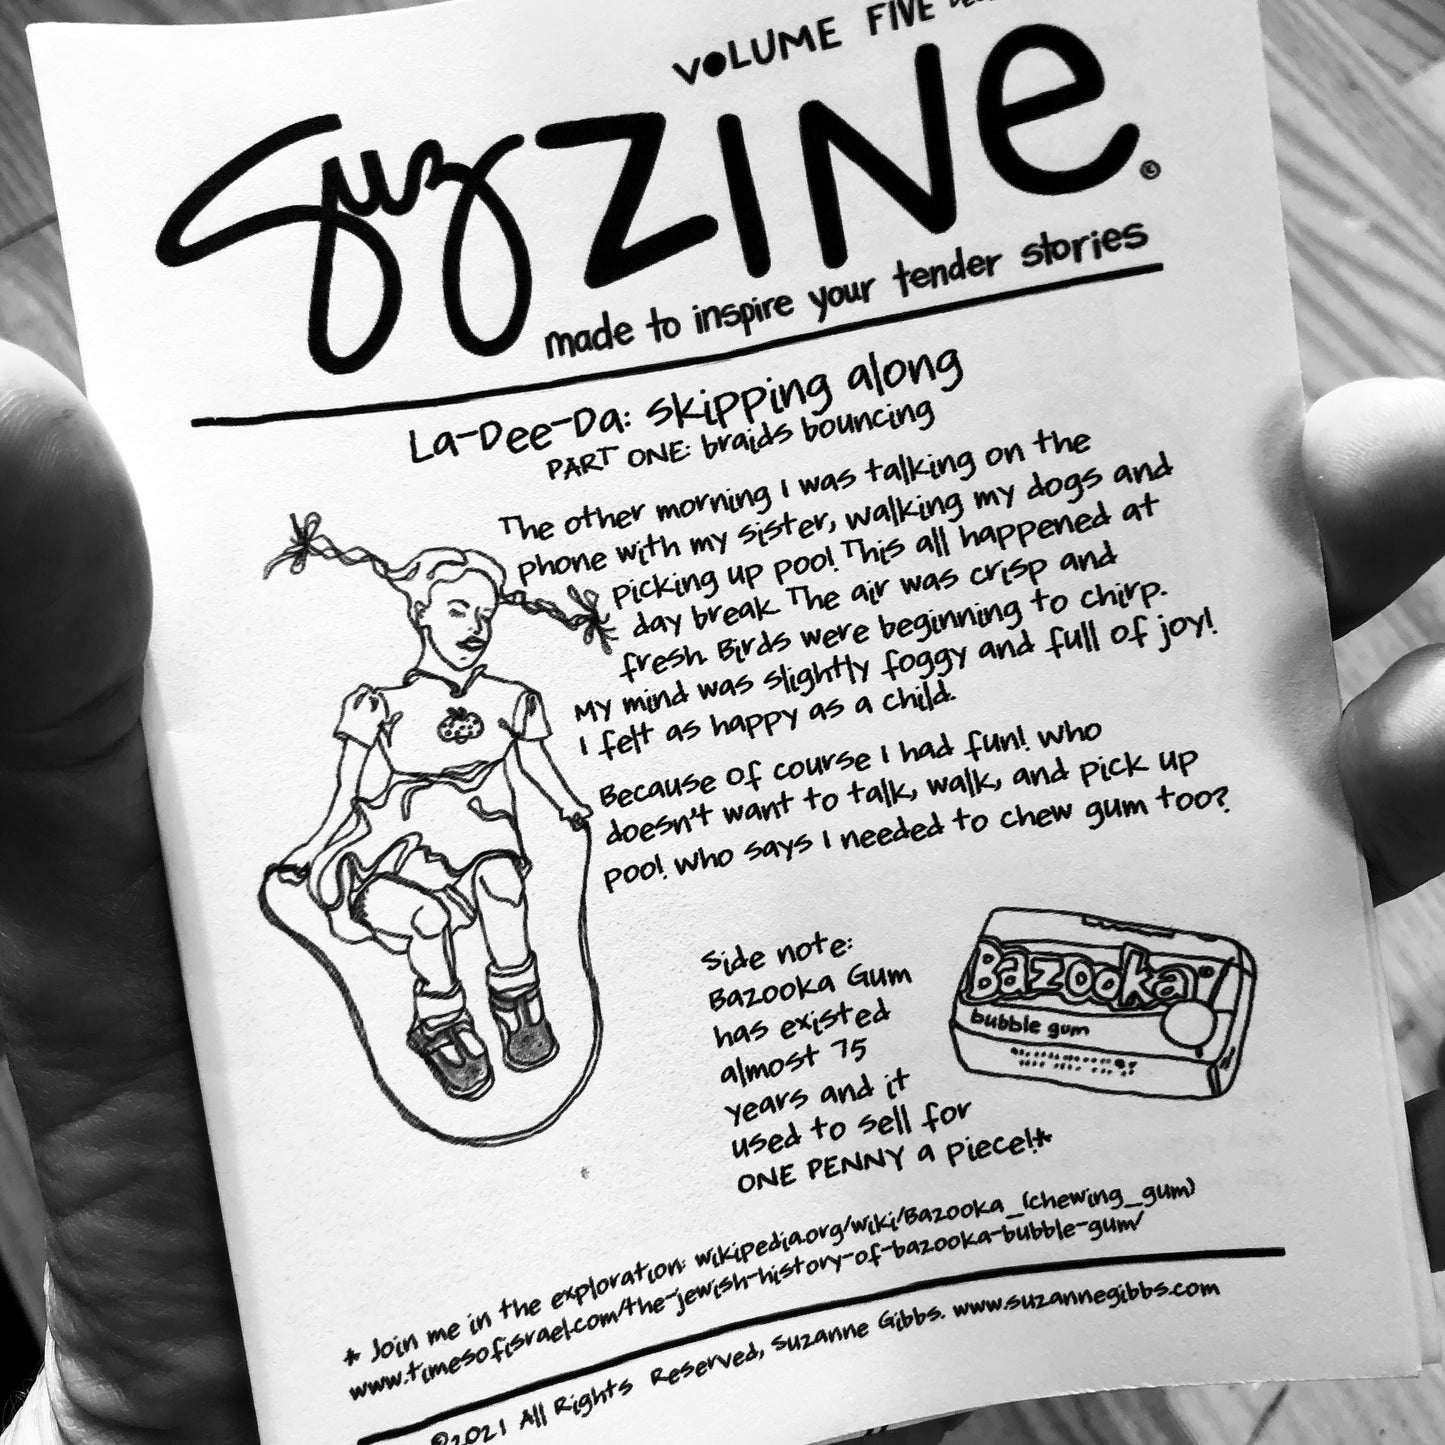 VOLUME FIVE
SuzZINE©
made to inspire your tender stories
La-Dee-Da: skipping along
PART ONE: braids bouncing
The other morning I was talking on the
phone with my sister, walking my dogs and
picking up poo! This all happened at
day break. The air was crisp and
fresh. Birds were beginning to chirp.
My mind was slightly foggy and full of joy!
I felt as happy as a child.
Because of course I had fun! Who
doesn't want to talk, walk, and pick up
poo! Who says I needed to chew gum too?
Side note:
Bazooka Gum
has existed
almost 75
years and it
used to sell for
ONE PENNY a piece!*
Bazooka
bubble gum
* Join me in the exploration: wikipedia.org/wiki/Bazooka_(chewing_gum)
www.timesofisrael.com/the-jewish-history-of-bazooka-bubble-gum/
©2021 All Rights Reserved, Suzanne Gibbs. www.suzannegibbs.com